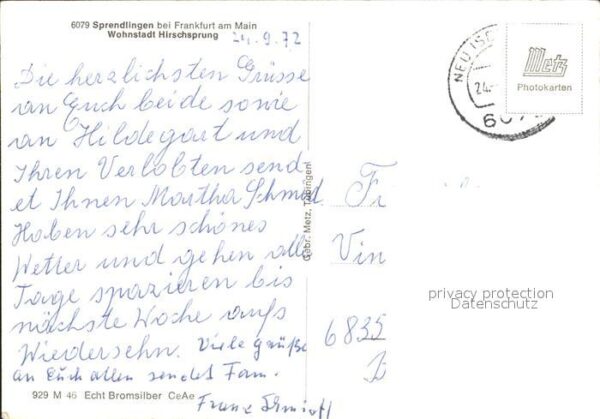 6079 Sprendlingen bei Frankfurt am Main
Wohnstadt Hirschsprung
24.9.72
Die herzlichsten Grüsse
an Euch beide sowie
an Hildegart und
Ihren Verlobten send-
et Ihnen Martha Schmid
Haben sehr schönes
Wetter und gehen alle
Tage spazieren bis
nächste Woche aufs
Wiedersehn. Viele Grüße
an Euch allen sendet Fam.
Franz Schmidt
929 M 46 Echt Bromsilber CeAe
Gebr. Metz, Tübingen
NEU ISE
24.
607
Metz
Photokarten
Fr
Vin
privacy protection
Datenschutz
6835